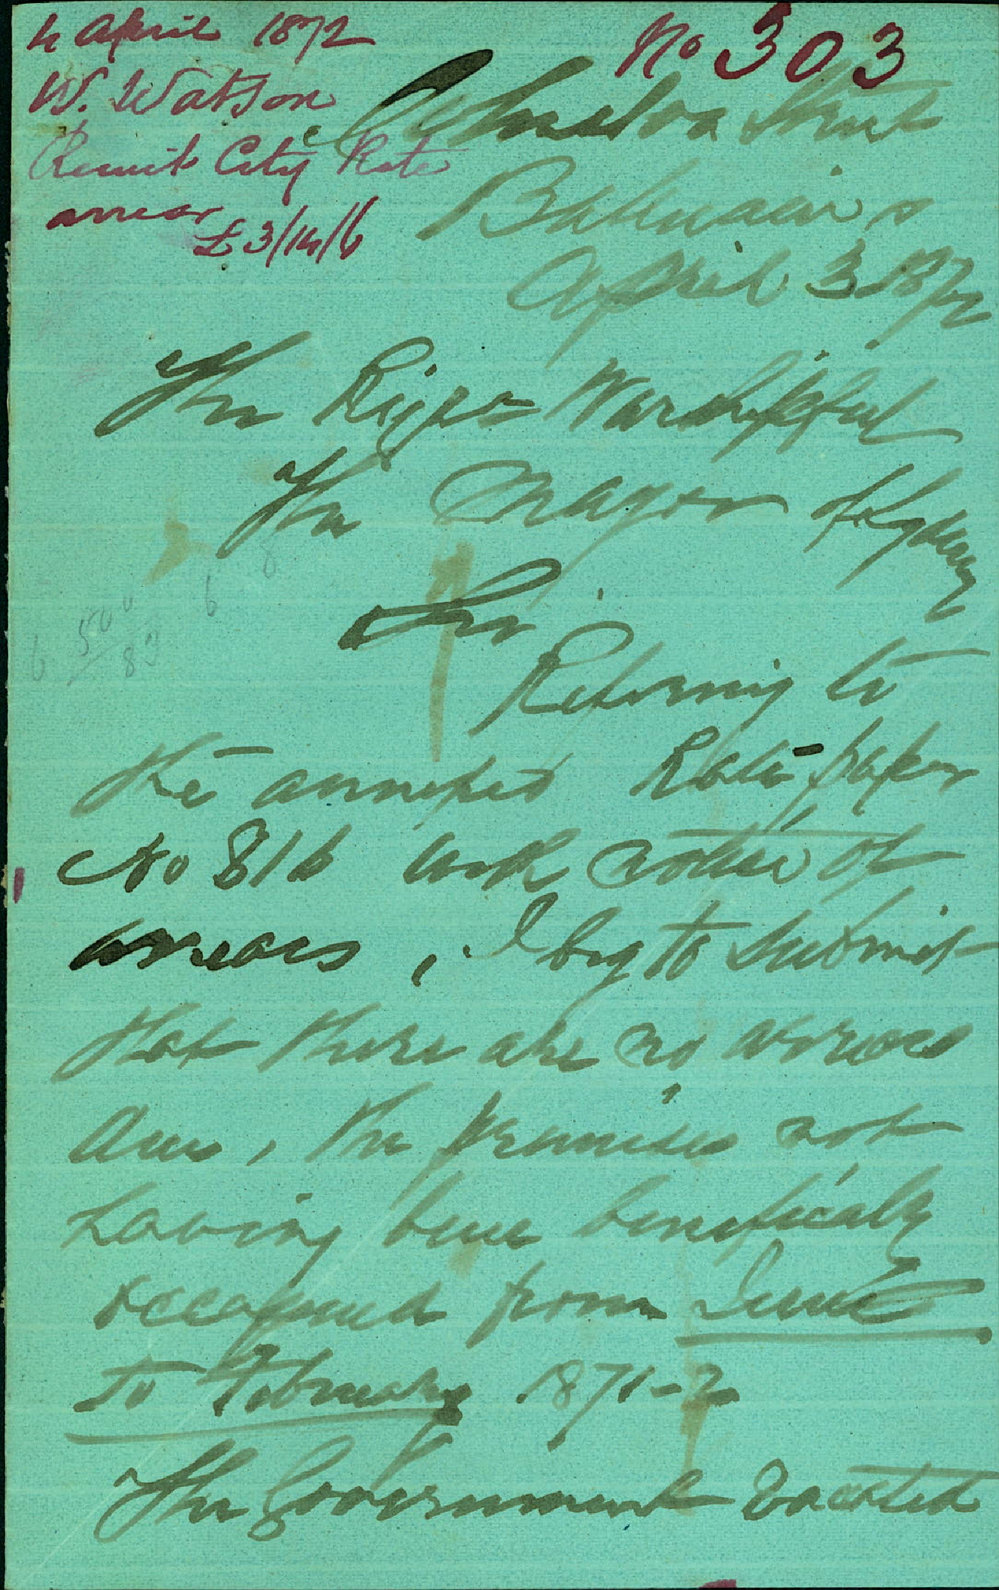 4 April 1872
W. Watson
Remit City Rate
arrear
£3/14/6
No 303
Street
Balmain
April 3 1872
The Right Worshipful
The Mayor of Sydney
Sir
Referring to
the annexed Rate paper
No 816 with notice of
arrears, I beg to submit
that there are no arrears
due, the premises not
having been beneficially
occupied from June
to February 1871-2
The Government vacated